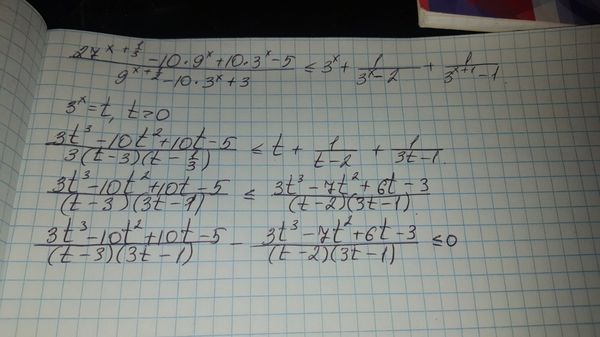 (27^{x+1/3} - 10·9^x + 10·3^x - 5)/(9^{x+1/2} - 10·3^x + 3) ≤ 3^x + 1/(3^x - 2) + 1/(3^{x+1} - 1)
3^x = t, t > 0
(3t^3 - 10t^2 + 10t - 5)/(3(t-3)(t - 1/3)) ≤ t + 1/(t-2) + 1/(3t-1)
(3t^3 - 10t^2 + 10t - 5)/((t-3)(3t-1)) ≤ (3t^3 - 7t^2 + 6t - 3)/((t-2)(3t-1))
(3t^3 - 10t^2 + 10t - 5)/((t-3)(3t-1)) - (3t^3 - 7t^2 + 6t - 3)/((t-2)(3t-1)) ≤ 0